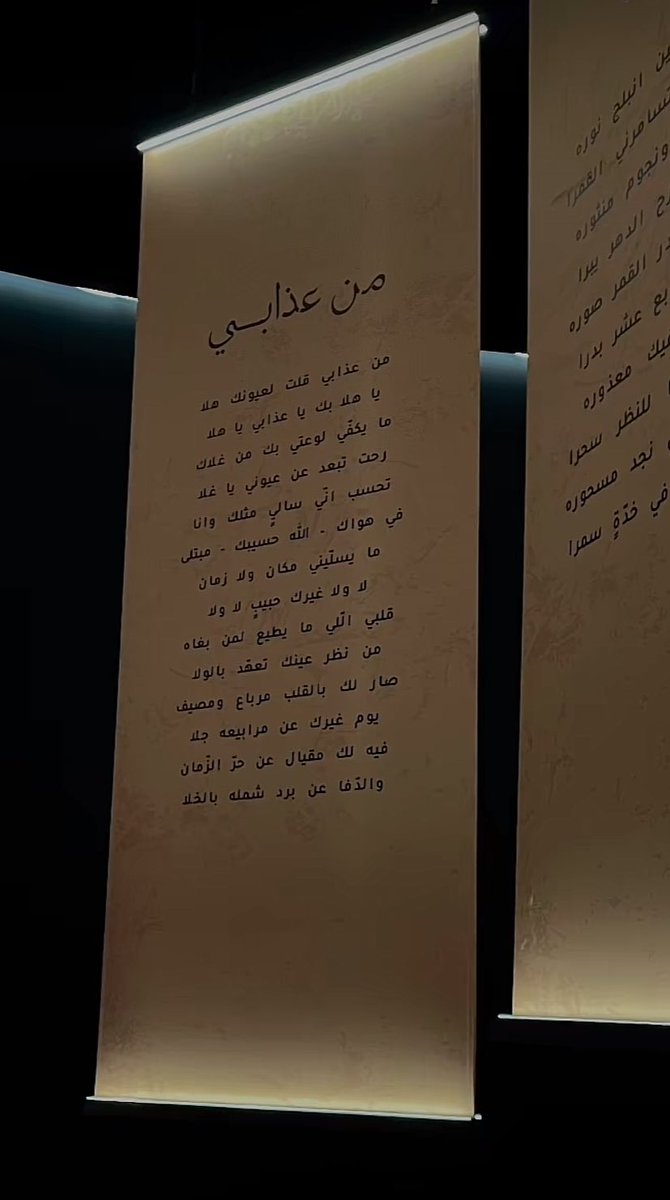 من عذابي
من عذابي قلت لعيونك هلا
يا هلا بك يا عذابي يا هلا
ما يكفّي لوعتي بك من غلاك
رحت تبعد عن عيوني يا غلا
تحسب انّي ساليٍ مثلك وانا
في هواك - الله حسيبك - مبتلى
ما يسلّيني مكان ولا زمان
لا ولا غيرك حبيبٍ لا ولا
قلبي الّلي ما يطيع لمن بغاه
من نظر عينك تعهّد بالولا
صار لك بالقلب مرباع ومصيف
يوم غيرك عن مرابيعه جلا
فيه لك مقيال عن حرّ الزّمان
والدّفا عن برد شمله بالخلا
انبلج نوره
القمرا
ونجوم منثوره
الدهر يبرا
القمر صوره
عشر بدرا
معذوره
للنظر سحرا
نجد مسحوره
في خدّةٍ سمرا